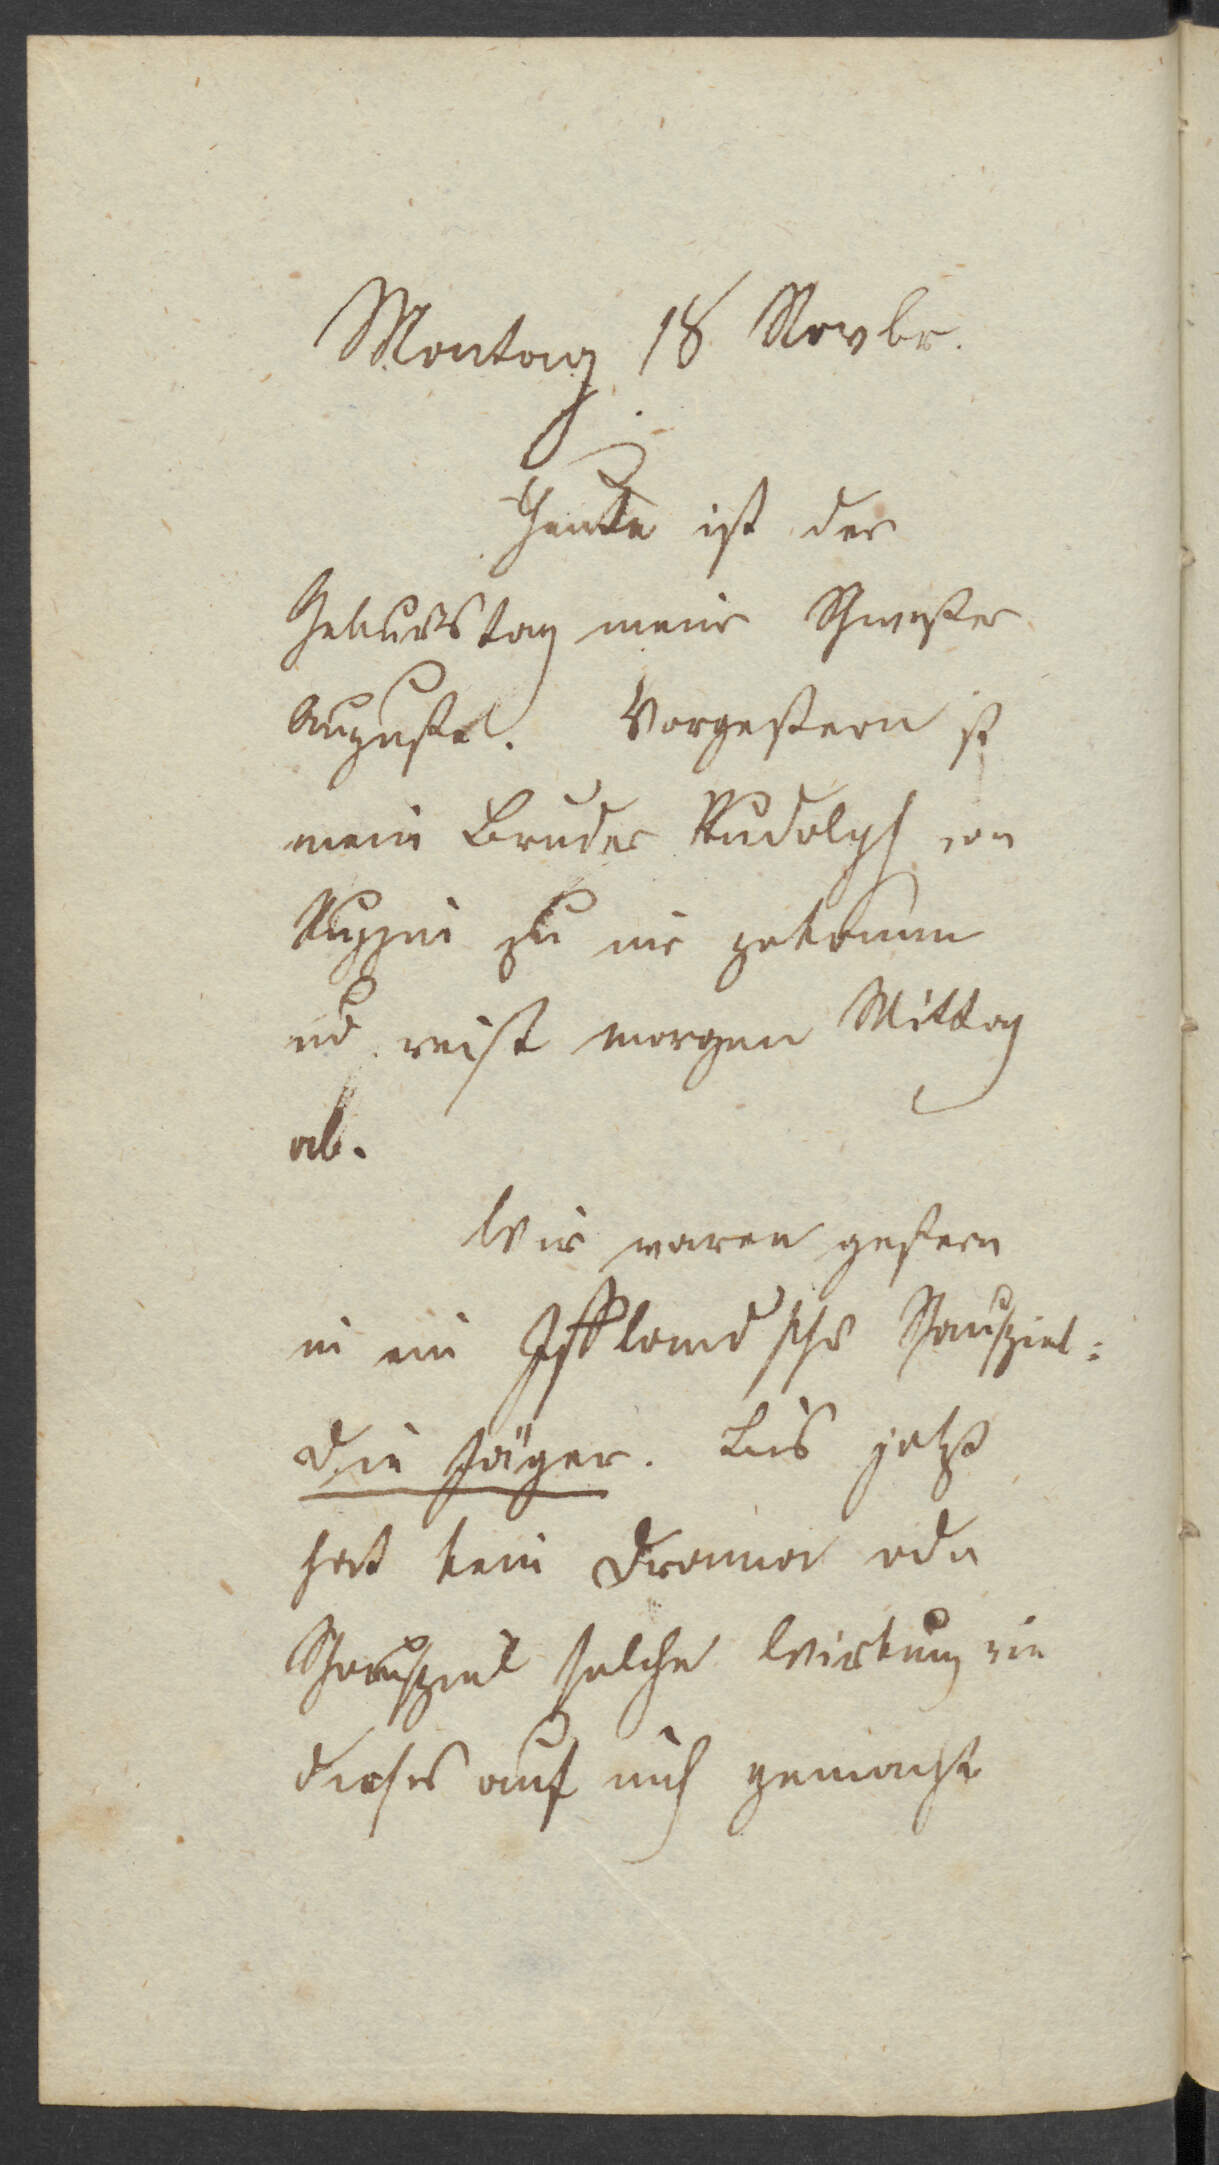 Montag 18 Novbr.
Heute ist der
Geburtstag meiner Schwester
Auguste. Vorgestern ist
mein Bruder Rudolph von
Ruppin zu mir gekommen
und reist morgen Mittag
ab.
Wir waren gestern
in ein Iffland'sches Schauspiel:
die Jäger. Bis jetzt
hat kein Drama oder
Schauspiel solche Wirkung wie
dieses auf mich gemacht